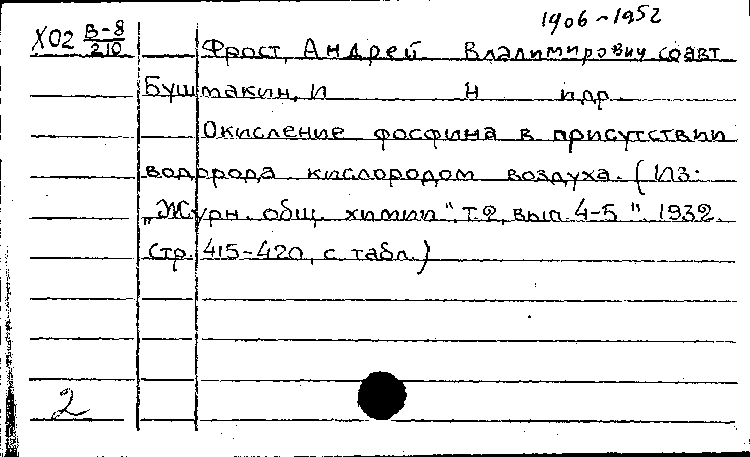 1906-1952
Х02 В-8/210
Фрост, Андрей Владимирович соавт
Бушмакин, И Н и др.
Окисление фосфина в присутствии
водорода кислородом воздуха. (Из:
„Журн. общ. химии", т.2, вып. 4-5". 1932.
стр. 415-420, с табл.)
2